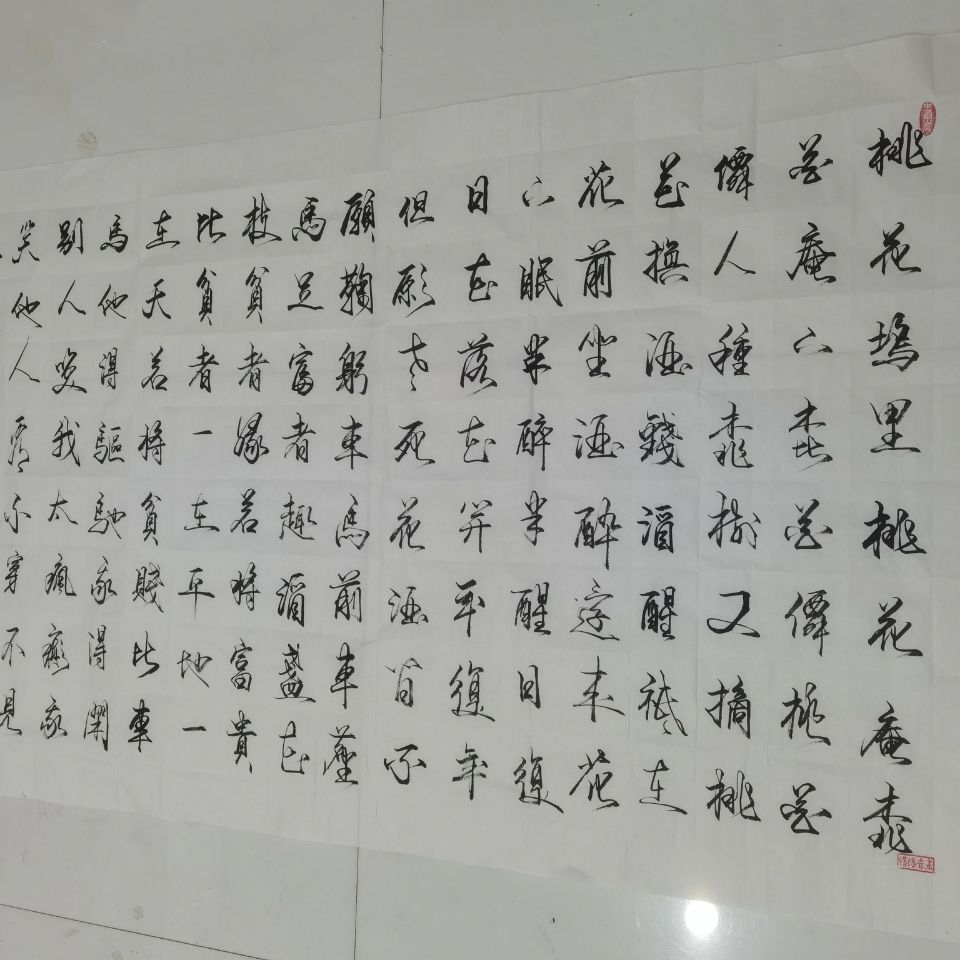 桃花塢里桃花庵桃
花庵下桃花僊桃花
僊人種桃樹又摘桃
花換酒錢酒醒祗在
花前坐酒醉還來花
下眠半醉半醒日復
日花落花開年復年
但願老死花酒間不
願鞠躬車馬前車塵
馬足富者趣酒盞花
枝貧者緣若將富貴
比貧者一在平地一
在天若將貧賤比車
馬他得驅馳我得閑
別人笑我太瘋癲我
笑他人看不穿不見